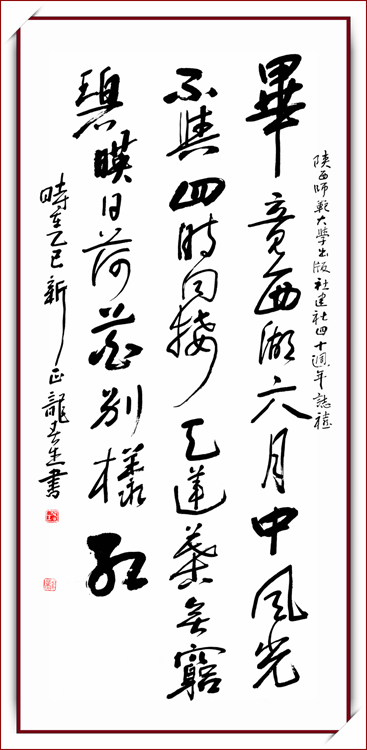 陕西師範大學出版社建社四十週年誌禧
畢竟西湖六月中風光
不與四時同接天蓮葉無窮
碧映日荷花別樣紅
時在乙巳新正龍生書